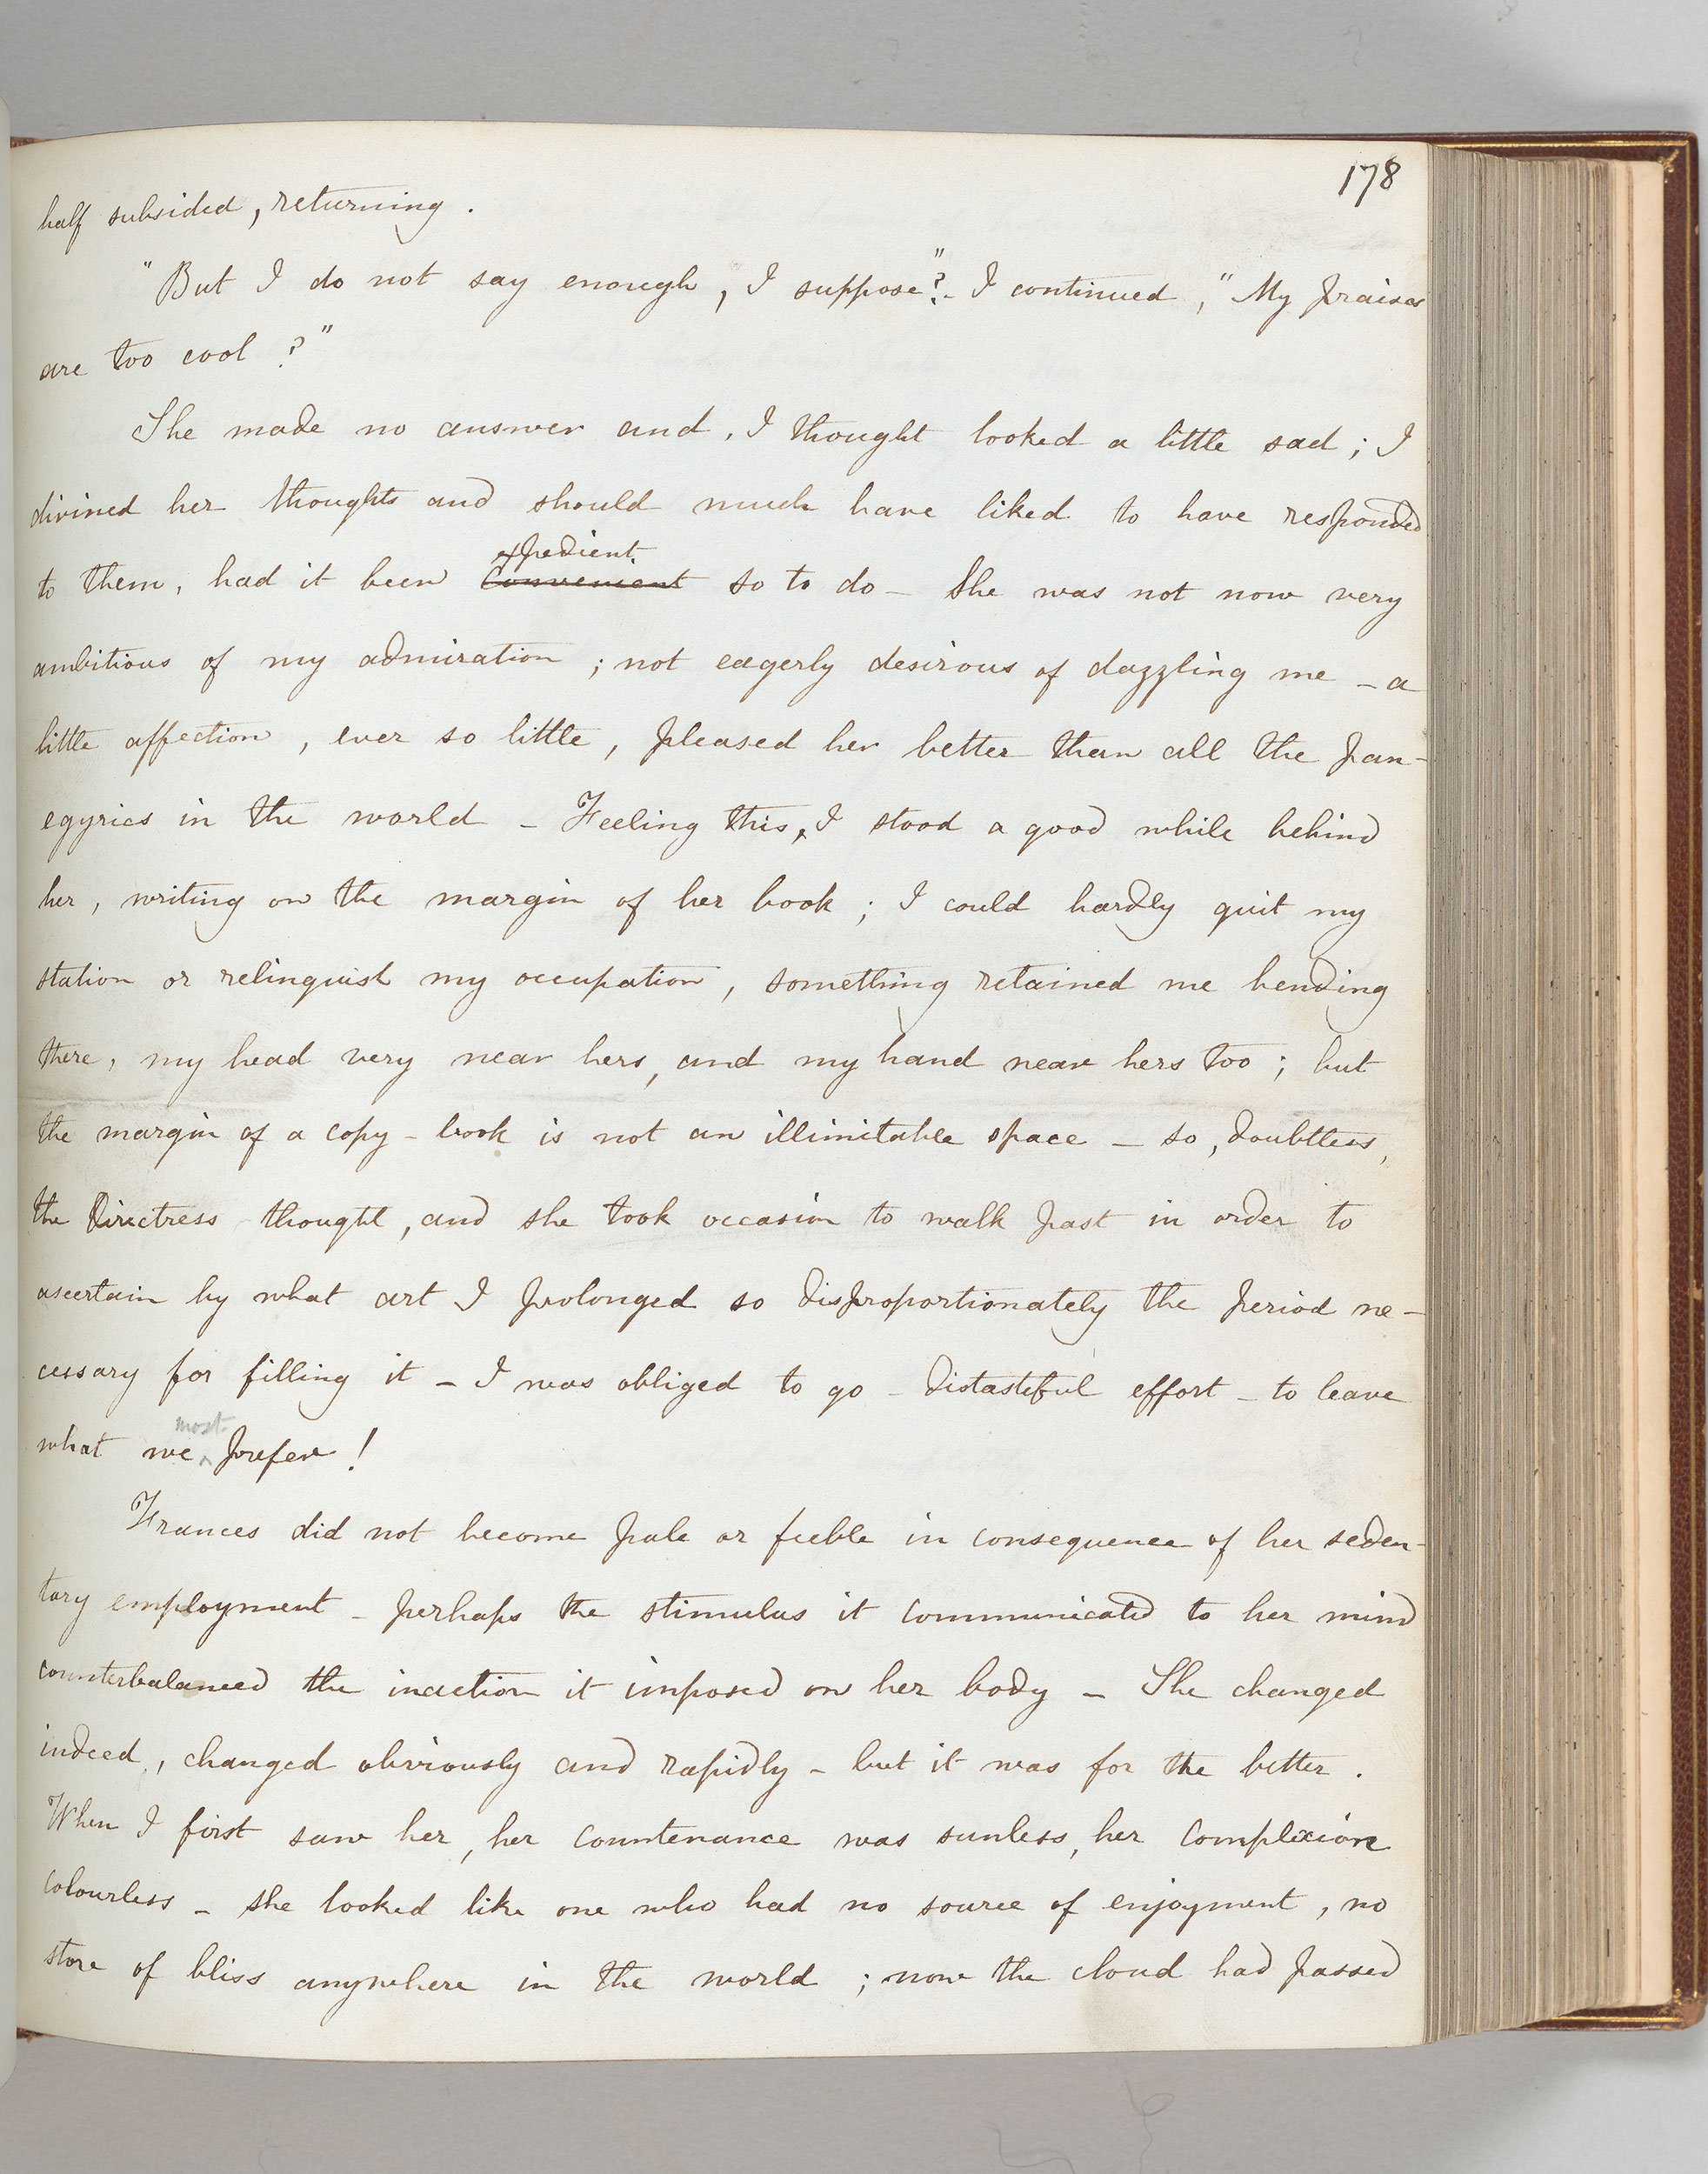 178
half subsided, returning.
"But I do not say enough, I suppose"? - I continued, "My praises
are too cool?"
She made no answer and, I thought looked a little sad; I
divined her thoughts and should much have liked to have responded
expedient
to them, had it been convenient so to do - She was not now very
ambitious of my admiration; not eagerly desirous of dazzling me - a
little affection, ever so little, pleased her better than all the pan-
egyrics in the world - Feeling this, I stood a good while behind
her, writing on the margin of her book; I could hardly quit my
station or relinquish my occupation, something retained me bending
there, my head very near hers, and my hand near hers too; but
the margin of a copy-book is not an illimitable space - so, doubtless,
the Directress thought, and she took occasion to walk past in order to
ascertain by what art I prolonged so disproportionately the period ne-
cessary for filling it - I was obliged to go - Distasteful effort - to leave
most
what we prefer!
Frances did not become pale or feeble in consequence of her seden-
tary employment - perhaps the stimulus it communicated to her mind
counterbalanced the inaction it imposed on her body - She changed
indeed, changed obviously and rapidly - but it was for the better.
When I first saw her, her countenance was sunless, her complexion
colourless - she looked like one who had no source of enjoyment, no
store of bliss anywhere in the world; now the cloud had passed